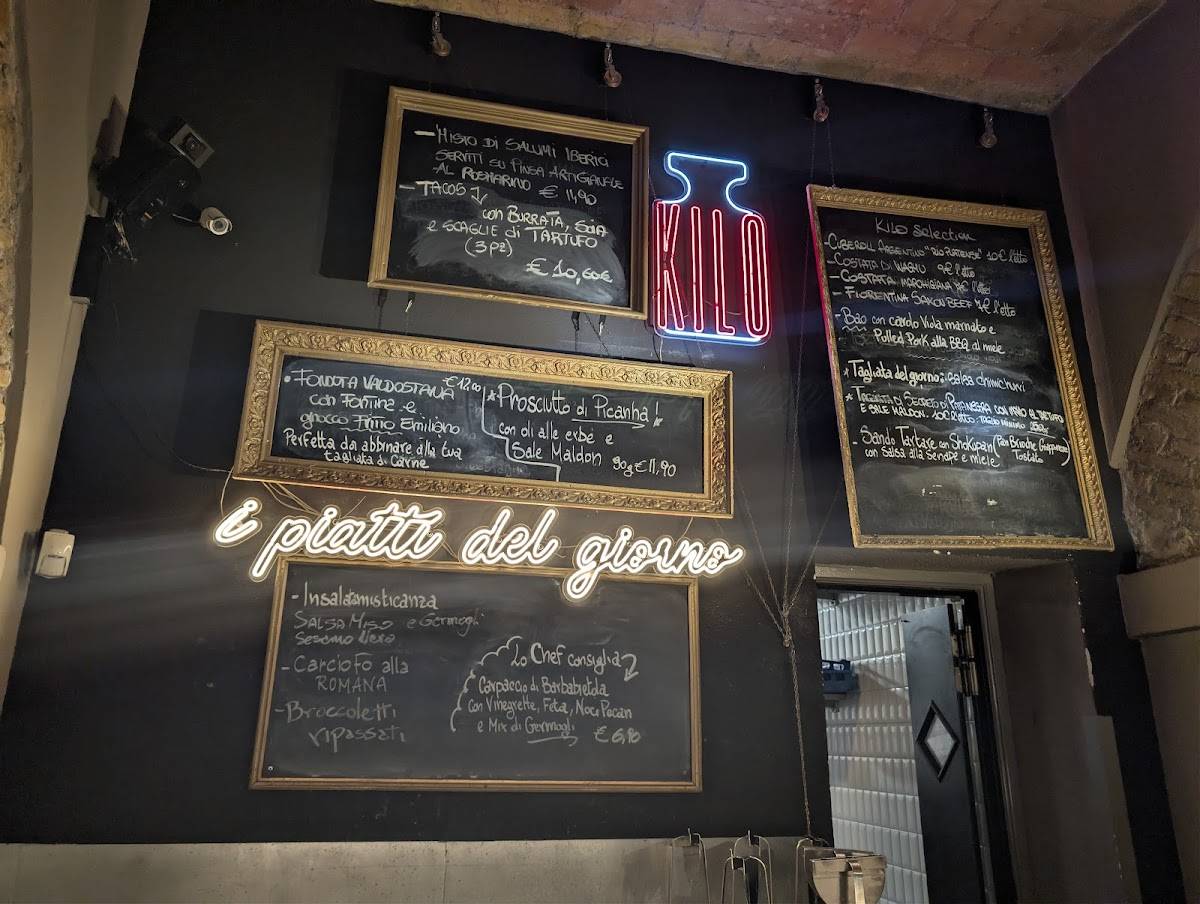 — MISTO DI SALUMI IBERICI
SERVITI SU PINSA ARTIGIANALE
AL ROSMARINO € 11,90
— TACOS
con BURRATA, SOIA
e SCAGLIE di TARTUFO
(3 pz)
€ 10,60€
KILO
KILO Selection
- CUBEROLL ARGENTINO "RIO PLATENSE" 10€ l'etto
- COSTATA DI WAGYU 9€ l'etto
- COSTATA MARCHIGIANA 7€ l'etto
- FIORENTINA SAKURA BEEF 7€ l'etto
- Bao con cavolo Viola marinato e
Pulled Pork alla BBQ al miele
* Tagliata del giorno: salsa chimichurri
* TAGLIATA DI SECRETO DI PATANEGRA CON
E SALE MALDON. 10€ l'etto: TAGLIO MINIMO 250g
- Sando Tartare con Shokupan (Pan Brioche Giapponese)
Tostato
con Salsa alla Senape e miele
• FONDUTA VALDOSTANA €12.00
con Fontina e
gnocco Fritto Emiliano
Perfetta da abbinare alla tua
tagliata di Carne
* Prosciutto di Picanha!
con oli alle erbe e
Sale Maldon 90g €11,90
i piatti del giorno
- Insalata misticanza
SALSA MISO e Germogli
Sesamo Nero
- CARCIOFO alla
ROMANA
- Broccoletti
ripassati
Lo Chef consiglia
Carpaccio di Barbabietola
con Vinegrette, Feta, Noci Pecan
e Mix di Germogli € 6,90